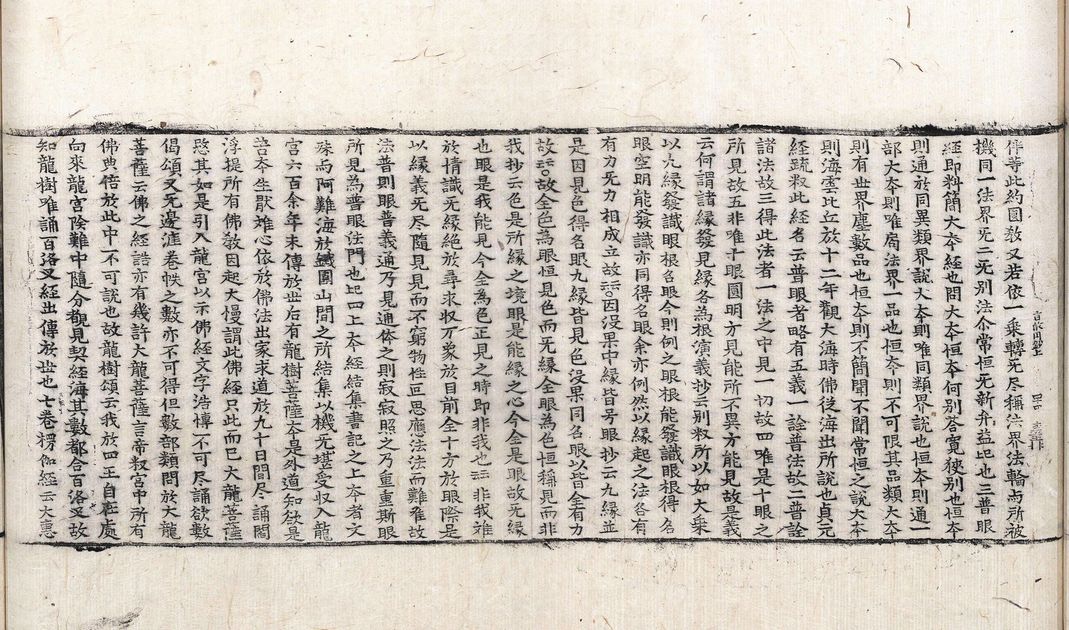 伴等此約圓教又若依一乘轉无尽稱法界法輪而所被
機同一法界无二无别法尒常恒无新舟益𠃔也三普眼
経即料簡大夲経也問大夲恒夲何别荅寛狹别也恒夲
則通於同異類界説大夲則唯同類界説也恒夲則通一
部大夲則唯局法界一品也恒夲則不可限其品類大夲
則有世界塵數品也恒夲則不簡聞不聞常恒之説大夲
則海雲比丘於十二年觀大海時佛従海出所説也貞元
経䟽叙此経名云普眼者略有五義一詮普法故二普詮
諸法故三得此法者一法之中見一切故四唯是十眼之
所見故五非唯十眼圓明方見能所不異方能見故是義
云何謂諸緣發見緣各為根演義抄云别叙所以如大乘
以九緣發識眼根名眼今則例之眼根能發識眼根得名
眼空明能發識亦同得名眼余亦例然以緣起之法各有
有力无力相成立故云云因没果中緣皆号眼抄云九緣並
是因見色得名眼九緣皆見色没果同名眼以皆全有力
故云云故全色為眼恒見色而无緣全眼為色恒稱見而非
我抄云色是所緣之境眼是能緣之心今全是眼故无緣
也眼是我能見今全為色正見之時即非我也云云非我雉
於情識无緣絶於尋求収万象於目前全十方於眼際是
以緣義无尽隨見見而不窮物性叵思應法法而難准故
法普則眼普義通乃見通体之則寂寂照之乃重重斯眼
所見為普眼法門也𠃔四上夲経結集書記之上夲者文
殊而阿難海於鐵圍山間之所結集以機无堪受収入龍
宮六百余年末傳於世后有龍樹菩薩夲是外道知欲是
苦夲生猒难心依於佛法出家求道於九十日間尽誦閻
浮提所有佛教因起大慢謂此佛経只此而已大龍菩薩
愍其如是引入龍宮以示佛経文字浩愽不可尽誦欲數
偈頌又无邊涯卷帙之數亦不可得但數部類問於大龍
菩薩云佛之経誥亦有幾許大龍菩薩言帝叙宮中所有
佛典倍於此中不可説也故龍樹頌云我於四王自在處
向來龍宮險難中隨分覩見契経海其數都合百洛叉故
知龍樹唯誦百洛叉経出傳於世也七卷楞伽経云大惠